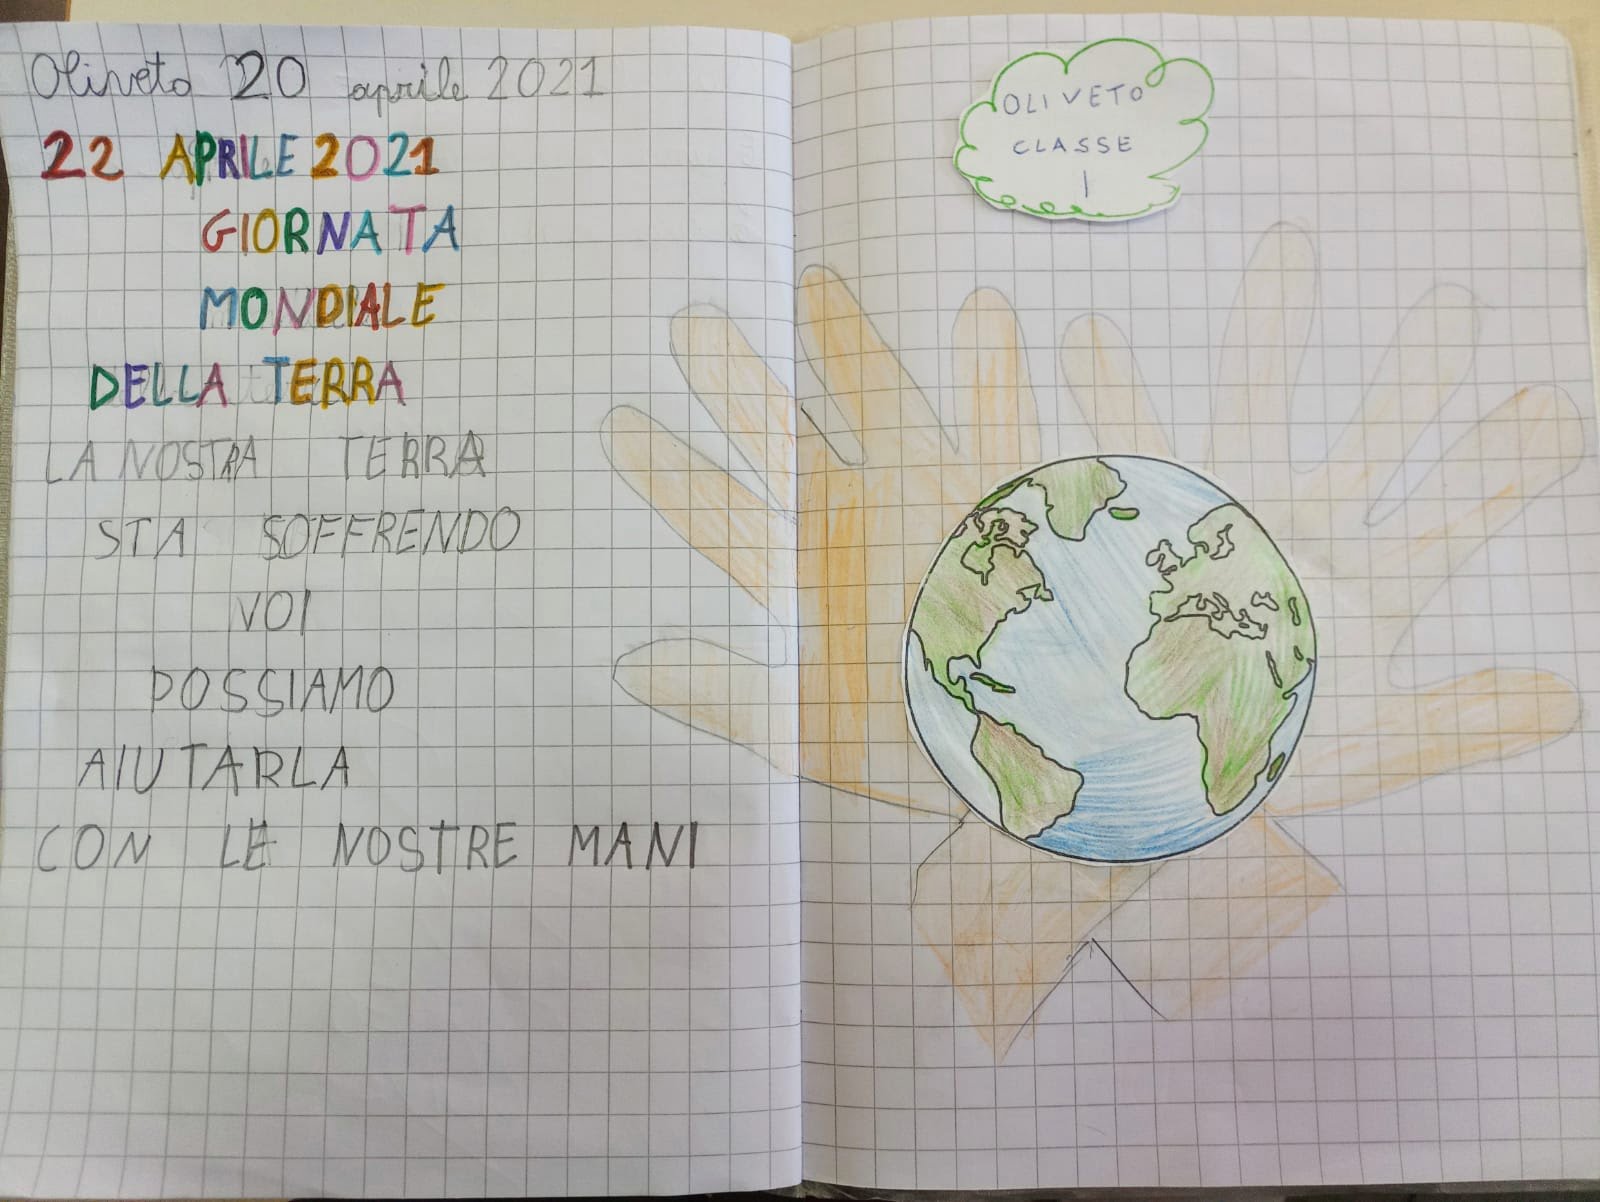 Oliveto 20 aprile 2021
22 APRILE 2021
GIORNATA
MONDIALE
DELLA TERRA
LA NOSTRA TERRA
STA SOFFRENDO
NOI
POSSIAMO
AIUTARLA
CON LE NOSTRE MANI
OLIVETO
CLASSE
I